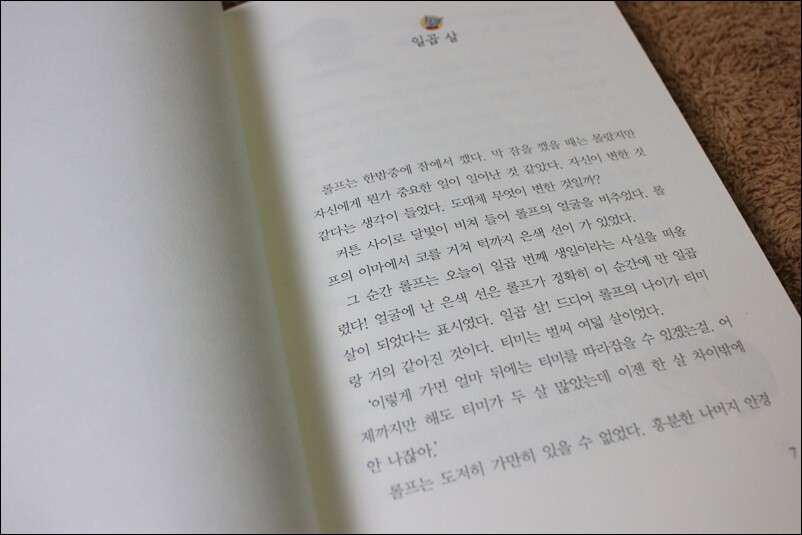 일곱 살
롤프는 한밤중에 잠에서 깼다. 막 잠을 깼을 때는 몰랐지만
자신에게 뭔가 중요한 일이 일어난 것 같았다. 자신이 변한 것
같다는 생각이 들었다. 도대체 무엇이 변한 것일까?
커튼 사이로 달빛이 비쳐 들어 롤프의 얼굴을 비추었다. 롤
프의 이마에서 코를 거쳐 턱까지 은색 선이 가 있었다.
그 순간 롤프는 오늘이 일곱 번째 생일이라는 사실을 떠올
렸다! 얼굴에 난 은색 선은 롤프가 정확히 이 순간에 만 일곱
살이 되었다는 표시였다. 일곱 살! 드디어 롤프의 나이가 티미
랑 거의 같아진 것이다. 티미는 벌써 여덟 살이었다.
'이렇게 가면 얼마 뒤에는 티미를 따라잡을 수 있겠는걸. 어
제까지만 해도 티미가 두 살 많았는데 이젠 한 살 차이밖에
안 나잖아.'
롤프는 도저히 가만히 있을 수 없었다. 흥분한 나머지 안경
7